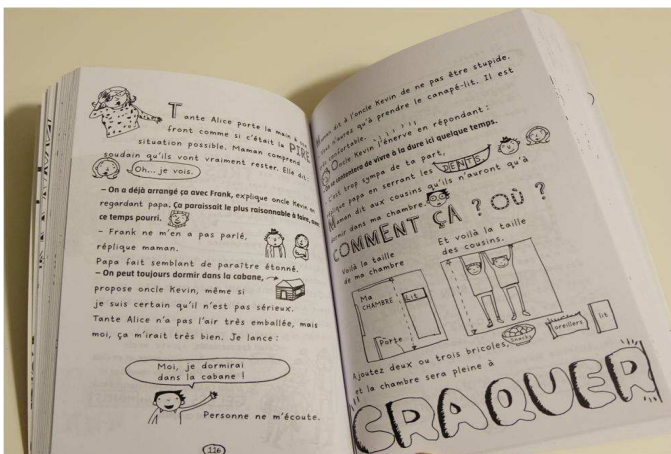 Tante Alice porte la main à son
front comme si c'était la PIRE
situation possible. Maman comprend
soudain qu'ils vont vraiment rester. Elle dit :
Oh... je vois.
– On a déjà arrangé ça avec Frank, explique oncle Kevin en
regardant papa. Ça paraissait le plus raisonnable à faire, avec
ce temps pourri.
– Frank ne m'en a pas parlé,
réplique maman.
Papa fait semblant de paraître étonné.
– On peut toujours dormir dans la cabane,
propose oncle Kevin, même si
je suis certain qu'il n'est pas sérieux.
Tante Alice n'a pas l'air très emballée, mais
moi, ça m'irait très bien. Je lance :
Moi, je dormirai
dans la cabane !
Personne ne m'écoute.
116
Maman dit à l'oncle Kevin de ne pas être stupide.
n'aurez qu'à prendre le canapé-lit. Il est
confortable.
Oncle Kevin l'énerve en répondant :
contentera de vivre à la dure ici quelque temps.
C'est trop sympa de ta part,
réplique papa en serrant les DENTS
Maman dit aux cousins qu'ils n'auront qu'à
dormir dans ma chambre.
COMMENT ÇA ? OÙ ?
Voilà la taille
de ma chambre
Et voilà la taille
des cousins.
Ma
CHAMBRE
Lit
Porte
Snacks
oreillers
lit
Ajoutez deux ou trois bricoles,
et la chambre sera pleine à
CRAQUER